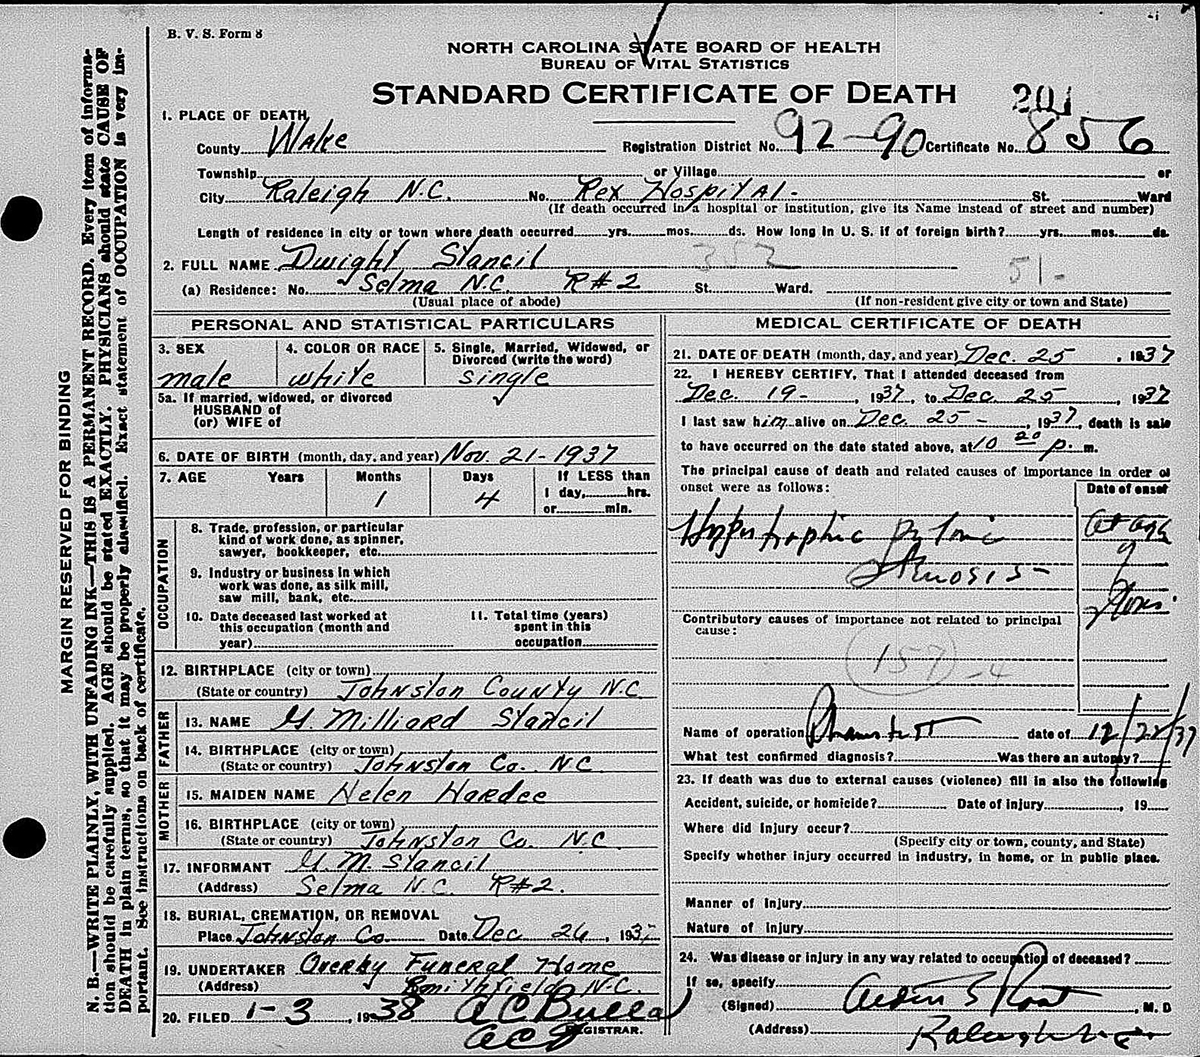 B. V. S. Form 8
NORTH CAROLINA STATE BOARD OF HEALTH
BUREAU OF VITAL STATISTICS
STANDARD CERTIFICATE OF DEATH
201
1. PLACE OF DEATH
County Wake Registration District No. 92-90 Certificate No. 856
Township or Village or
City Raleigh N.C. No. Rex Hospital - St. Ward
(If death occurred in a hospital or institution, give its Name instead of street and number)
Length of residence in city or town where death occurred yrs. mos. ds. How long in U. S. if of foreign birth? yrs. mos. ds.
2. FULL NAME Dwight Stancil 352 51-
(a) Residence: No. Selma N.C. R#2 St. Ward.
(Usual place of abode) (If non-resident give city or town and State)
PERSONAL AND STATISTICAL PARTICULARS
3. SEX 4. COLOR OR RACE 5. Single, Married, Widowed, or
Divorced (write the word)
male white single
5a. If married, widowed, or divorced
HUSBAND of
(or) WIFE of
6. DATE OF BIRTH (month, day, and year) Nov. 21-1937
7. AGE Years Months Days If LESS than
1 4 1 day, hrs.
or min.
OCCUPATION
8. Trade, profession, or particular
kind of work done, as spinner,
sawyer, bookkeeper, etc.
9. Industry or business in which
work was done, as silk mill,
saw mill, bank, etc.
10. Date deceased last worked at
this occupation (month and
year)
11. Total time (years)
spent in this
occupation
12. BIRTHPLACE (city or town)
(State or country) Johnston County N.C
FATHER
13. NAME G. Milliard Stancil
14. BIRTHPLACE (city or town)
(State or country) Johnston Co. N.C.
MOTHER
15. MAIDEN NAME Helen Hardee
16. BIRTHPLACE (city or town)
(State or country) Johnston Co. N.C.
17. INFORMANT G. M. Stancil
(Address) Selma N.C. R#2.
18. BURIAL, CREMATION, OR REMOVAL
Place Johnston Co. Date Dec 26, 1937
19. UNDERTAKER Overby Funeral Home
(Address) Smithfield N.C.
20. FILED 1-3, 1938 A C Bulla
REGISTRAR.
MEDICAL CERTIFICATE OF DEATH
21. DATE OF DEATH (month, day, and year) Dec. 25, 1937
22. I HEREBY CERTIFY, That I attended deceased from
Dec. 19-, 1937, to Dec. 25, 1937
I last saw him alive on Dec. 25-, 1937, death is said
to have occurred on the date stated above, at 10 20 p. m.
The principal cause of death and related causes of importance in order of
onset were as follows:
Date of onset
Hypertrophic pyloric
stenosis-
Contributory causes of importance not related to principal
cause:
157-4
Name of operation date of 12/22/37
What test confirmed diagnosis? Was there an autopsy?
23. If death was due to external causes (violence) fill in also the following
Accident, suicide, or homicide? Date of injury, 19
Where did injury occur?
(Specify city or town, county, and State)
Specify whether injury occurred in industry, in home, or in public place.
Manner of Injury
Nature of Injury
24. Was disease or injury in any way related to occupation of deceased?
If so, specify
(Signed), M. D
(Address) Raleigh
MARGIN RESERVED FOR BINDING
N. B.—WRITE PLAINLY, WITH UNFADING INK—THIS IS A PERMANENT RECORD. Every item of informa-
tion should be carefully supplied. AGE should be stated EXACTLY. PHYSICIANS should state CAUSE OF
DEATH in plain terms, so that it may be properly classified. Exact statement of OCCUPATION is very im-
portant. See instructions on back of certificate.